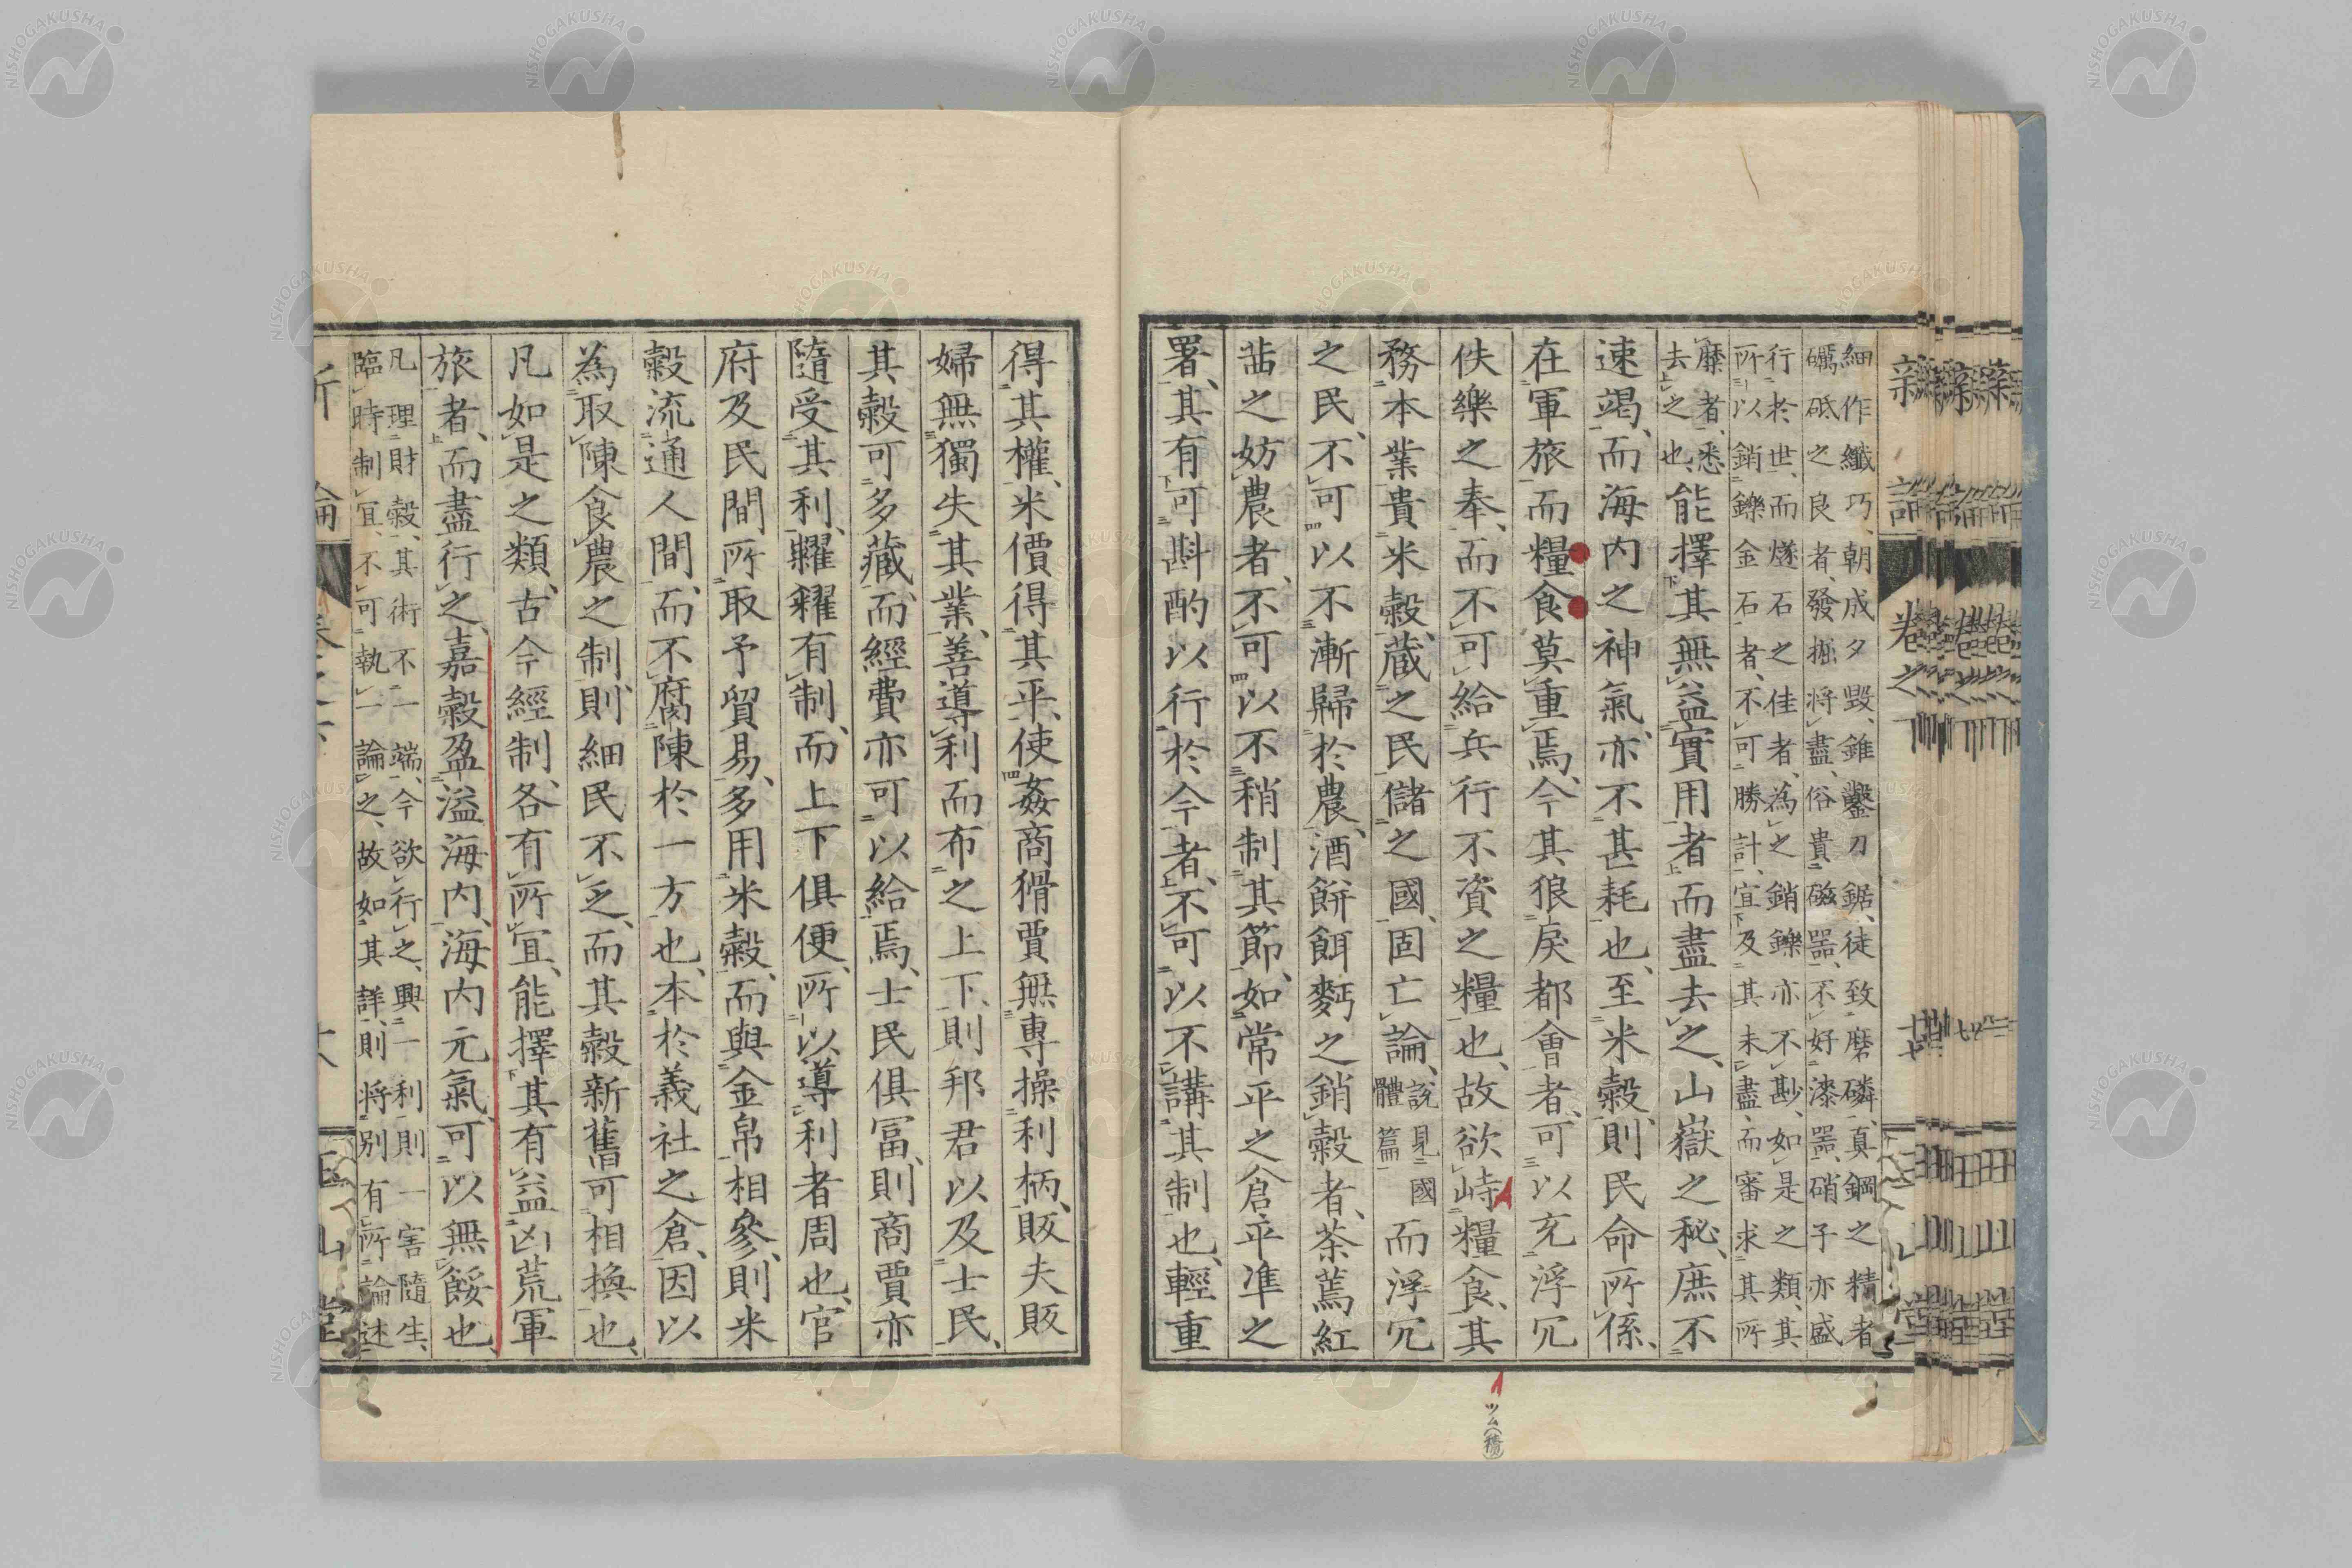 細作纖巧、朝成夕毀、錐鑿刀鋸、徒致磨磷、眞鋼之精者
礪砥之良者、發掘將盡、俗貴磁器、不好漆器、硝子亦盛
行於世、而燧石之佳者、為之銷鑠亦不尠、如是之類、其
所以銷鑠金石者、不可勝計、宜及其未盡、而審求其所
靡者、悉
去之也、
能擇其無益實用者而盡去之、山嶽之秘、庶不
速竭、而海内之神氣、亦不甚耗也、至米穀、則民命所係、
在軍旅而糧食莫重焉、今其狼戾都會者、可以充浮冗
佚樂之奉、而不可給兵行不資之糧也、故欲峙糧食、其
務本業貴米穀、藏之民儲之國、固亡論、
說見國
體篇
而浮冗
之民、不可以不漸歸於農、酒餅餌麪之銷穀者、茶蔫紅
茁之妨農者、不可以不稍制其節、如常平之倉平準之
署、其有可斟酌以行於今者、不可以不講其制也、輕重
得其權、米價得其平、使姦商猾賈無專操利柄、販夫販
婦無獨失其業、善導利而布之上下、則邦君以及士民、
其穀可多藏、而經費亦可以給焉、士民俱冨、則商賈亦
隨受其利、糶糴有制、而上下俱便、所以導利者周也、官
府及民間所取予貿易、多用米穀、而與金帛相參、則米
穀流通人間、而不腐陳於一方也、本於義社之倉、因以
為取陳食農之制、則細民不乏、而其穀新舊可相換也、
凡如是之類、古今經制、各有所宜、能擇其有益凶荒軍
旅者、而盡行之、嘉穀盈溢海内、海内元氣、可以無餒也、
凡理財穀、其術不一端、今欲行之、興一利則一害隨生、
臨時制宜、不可執一論之、故如其詳、則將別有所論述